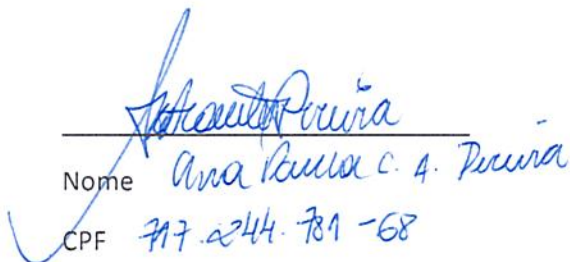 Pereira
Nome Ana Paula C. A. Pereira
CPF 717.244.781-68